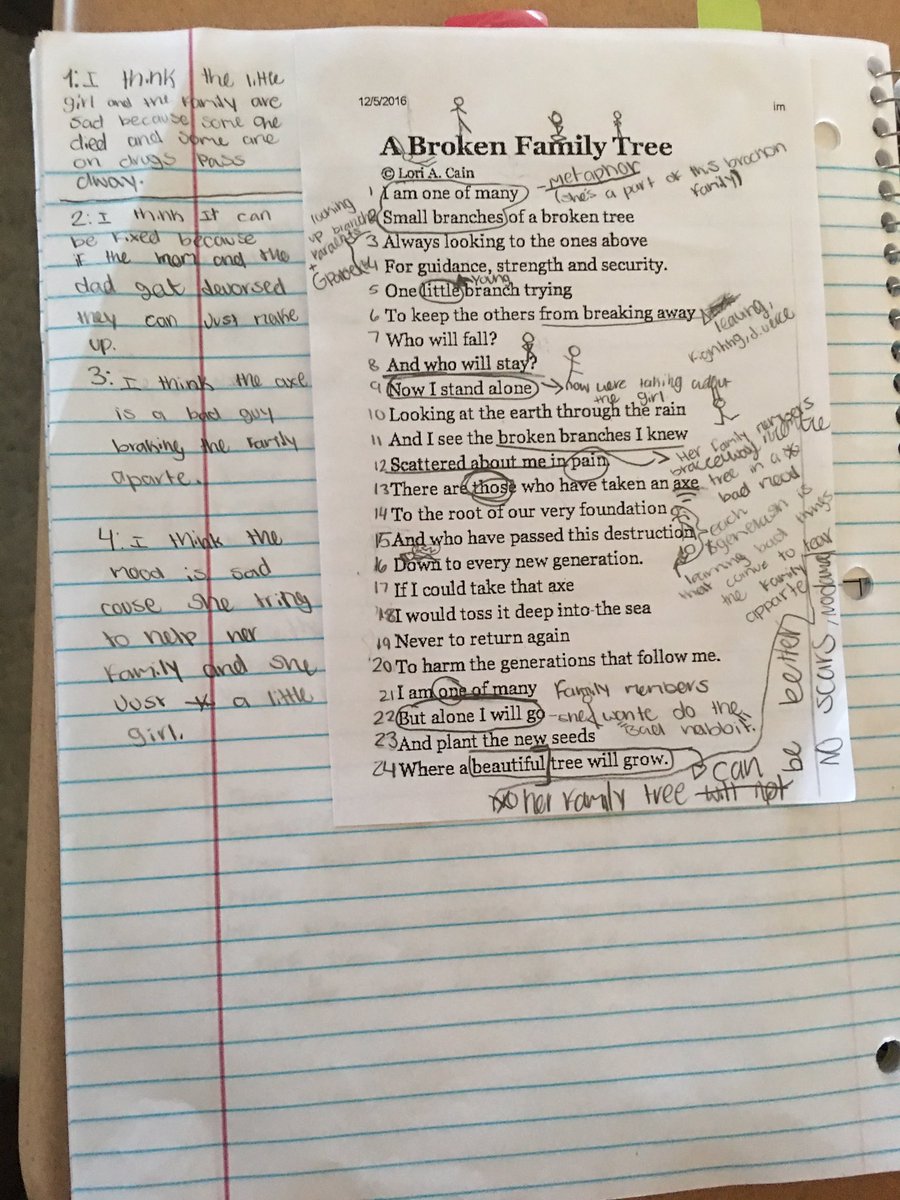 1: I think the little
girl and the family are
sad because some one
died and some are
on drugs pass
away.
2: I think It can
be fixed because
if the mom and the
dad gat devorsed
they can Just make
up.
3: I think the axe
is a bad guy
braking the family
aparte.
4: I think the
mood is sad
cause she tring
to help her
family and she
Just a little
girl.
12/5/2016
im
A Broken Family Tree
© Lori A. Cain
1 I am one of many
- metaphor
(she's a part of this brochon
family)
2 Small branches of a broken tree
looking
up branche
+ Paraents
3 Always looking to the ones above
4 For guidance, strength and security.
young
5 One little branch trying
6 To keep the others from breaking away
leaving,
fighting, divorce
7 Who will fall?
8 And who will stay?
9 Now I stand alone
now were talking
the girl
10 Looking at the earth through the rain
11 And I see the broken branches I knew
12 Scattered about me in pain
Her family members
tree in a
bad mood
13 There are those who have taken an axe
14 To the root of our very foundation
15 And who have passed this destruction
each
generation is
learning bad things
that come to tear
the family
apparte
16 Down to every new generation.
17 If I could take that axe
18 I would toss it deep into the sea
19 Never to return again
20 To harm the generations that follow me.
21 I am one of many
Family members
22 But alone I will go
- she wante do the
"Bad habbit."
23 And plant the new seeds
24 Where a beautiful tree will grow.
her family tree will not can be better
NO scars,